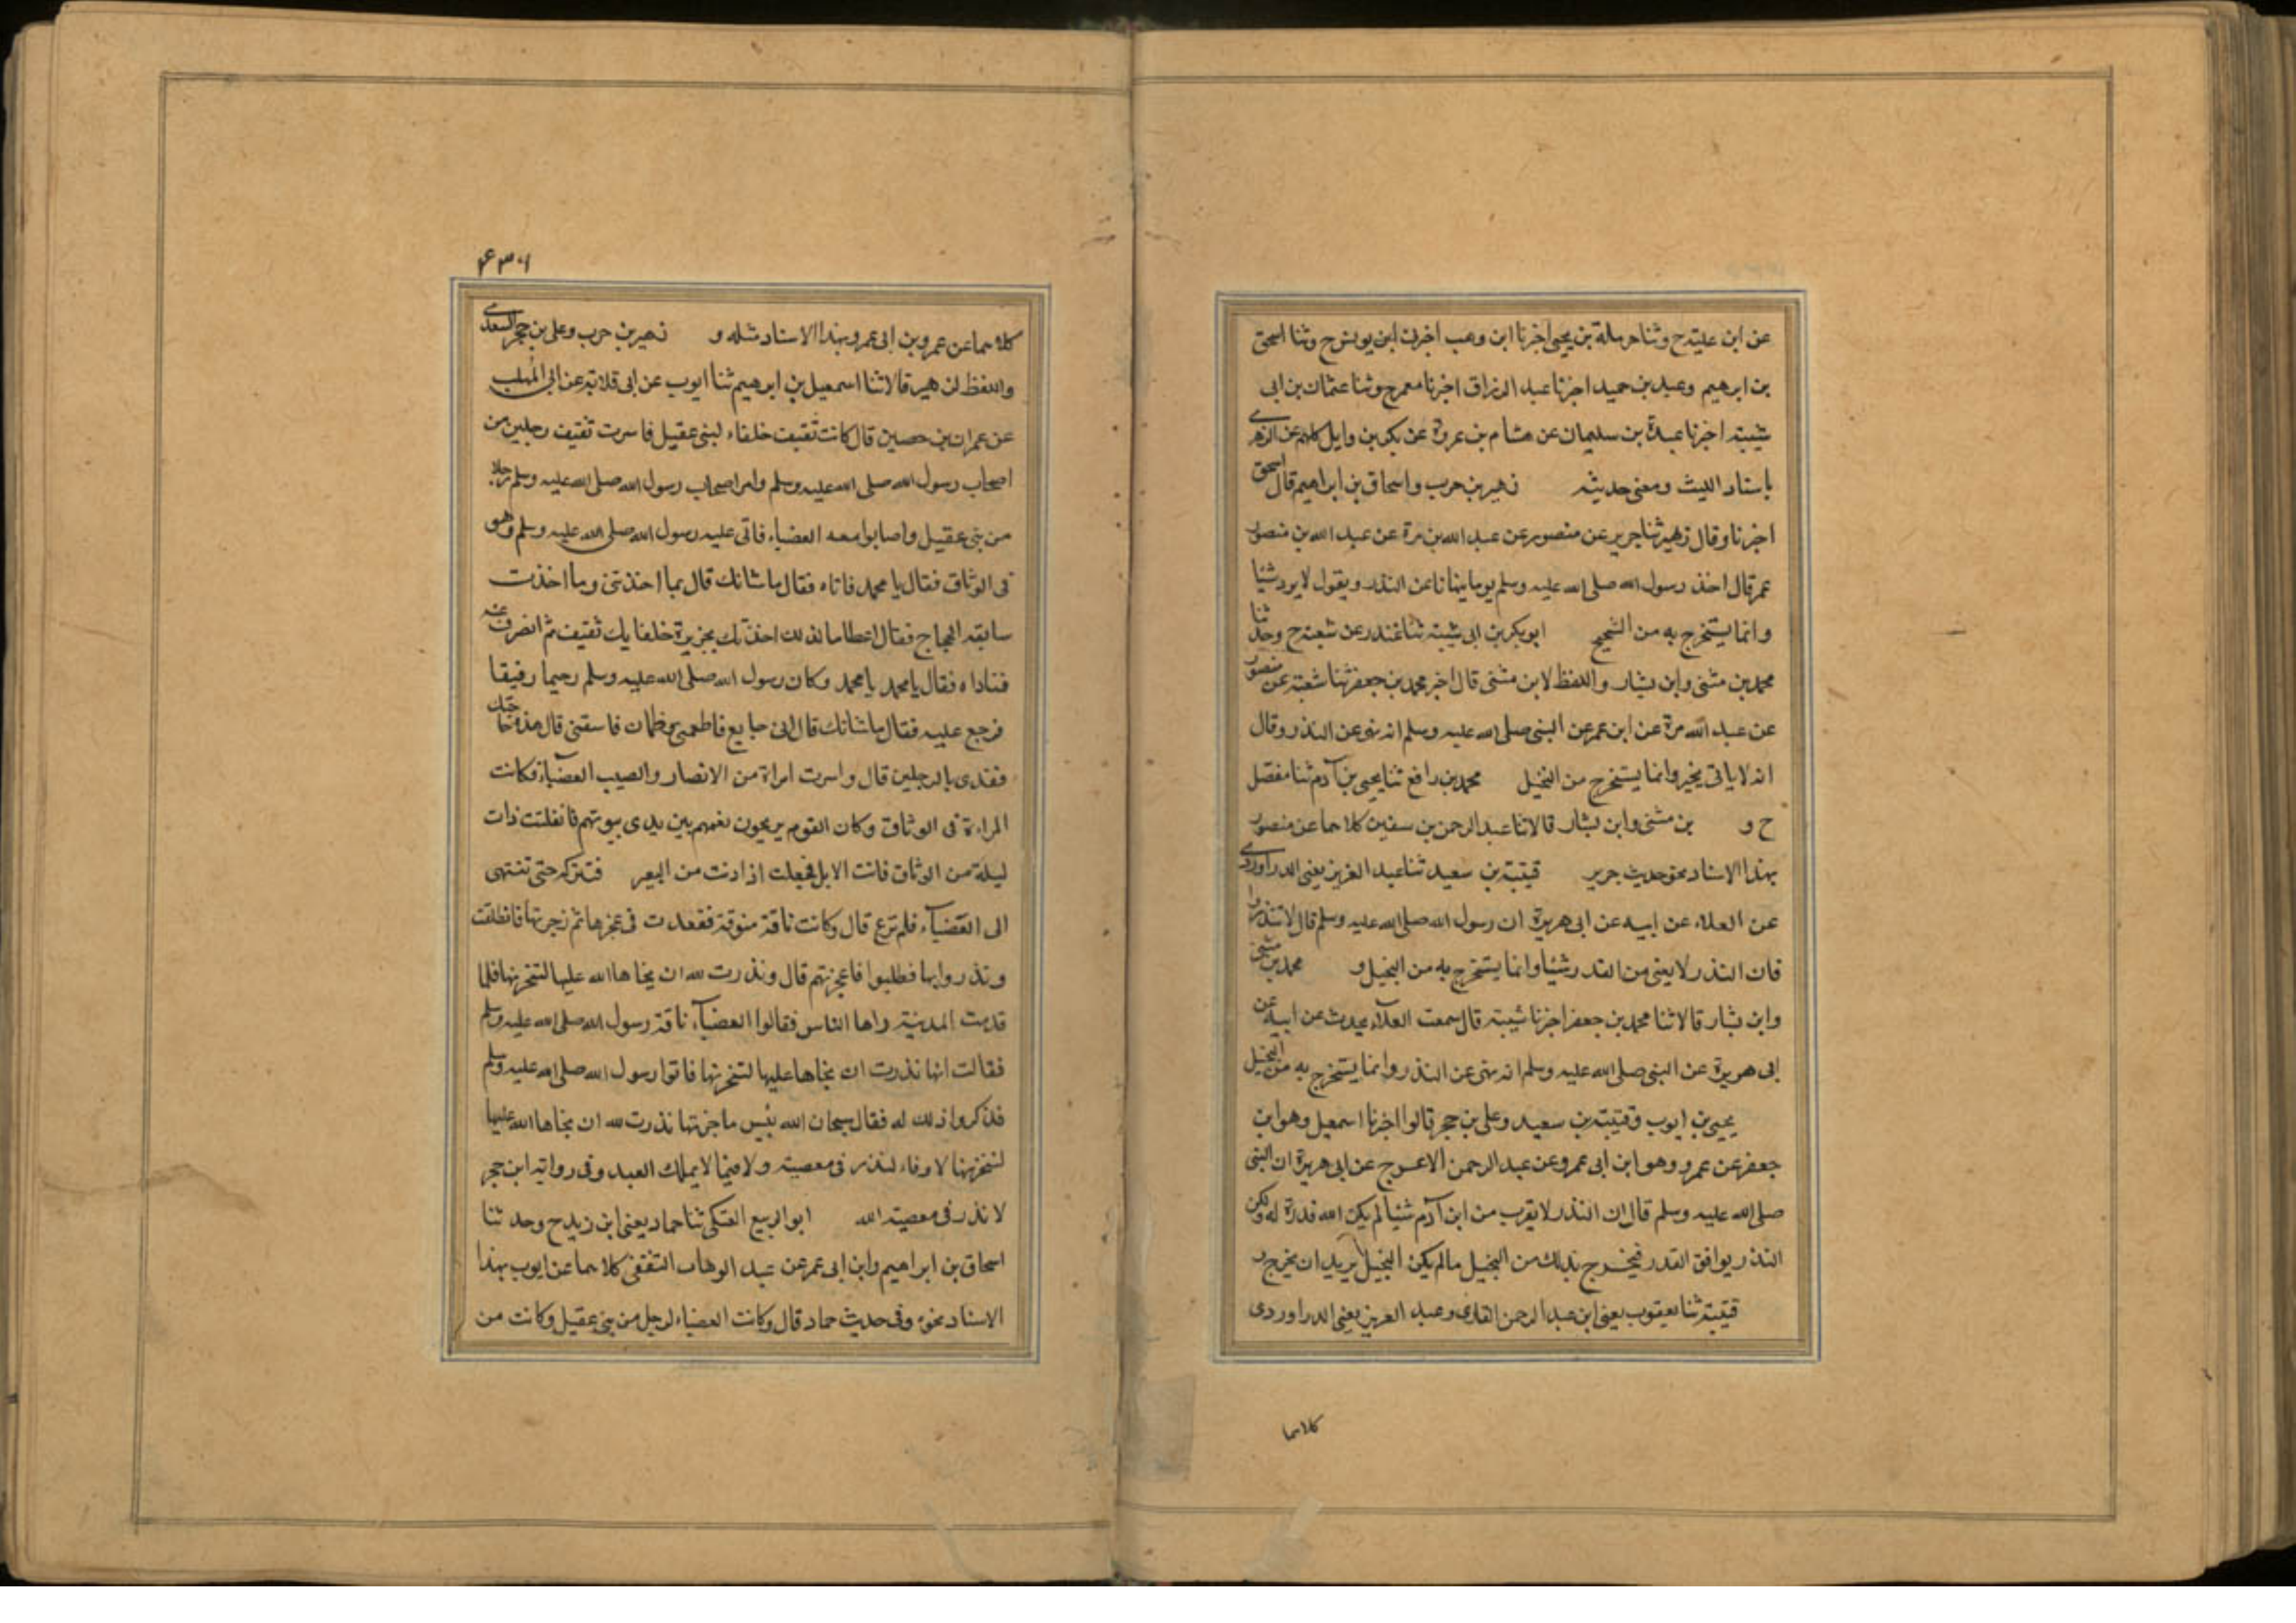 عن ابن عليته ح وثنا حرملة بن يحيى اخبرنا ابن وهب اخبرنى ابن يونس ح وثنا اسحق
بن ابرهيم وعبد بن حميد اخبرنا عبد الرزاق اخبرنا معمر ح وثنا عثمان بن ابى
شيبته اخبرنا عبدة بن سليمان عن هشام بن عروة عن بكر بن وايل كلهم عن الزهرى
باسناد الليث ومعنى حديثه زهير بن حرب واسحاق بن ابراهيم قال اسحق
اخبرنا وقال زهير ثنا جرير عن منصور عن عبد الله بن مرة عن عبد الله بن منصور
عمر قال اخذ رسول الله صلى الله عليه وسلم يوما ينهانا عن النذر ويقول لا يرد شيا
وانما يستخرج به من الشحيح ابو بكر بن ابى شيبته ثنا غندر عن شعبته ح وحدثنا
محمد بن مثنى وابن بشار واللفظ لابن مثنى قال اخبر محمد بن جعفر ثنا شعبته عن منصور
عن عبد الله مرة عن ابن عمر عن النبى صلى الله عليه وسلم انه نهى عن النذر وقال
انه لا ياتى بخير وانما يستخرج من البخيل محمد بن رافع ثنا يحيى بن آدم ثنا مفضل
ح و بن مثنى وابن بشار قالا ثنا عبد الرحمن بن سفين كلاهما عن منصور
بهذا الاسناد نحو حديث جرير قيتبته بن سعيد ثنا عبد العزيز يعنى الدراوردى
عن العلاء عن ابيه عن ابى هريرة ان رسول الله صلى الله عليه وسلم قال لا تنذروا
فان النذر لا يغنى من القدر شيا وانما يستخرج به من البخيل و محمد بن مثنى
وابن بشار قالا ثنا محمد بن جعفر اخبرنا شيبته قال سمعت العلآء يحدث عن ابيه عن
ابى هريرة عن النبى صلى الله عليه وسلم انه نهى عن النذر وانما يستخرج به من البخيل
يحيى بن ايوب وقتيبته بن سعيد وعلى بن حجر قالوا اخبرنا اسمعيل وهو ابن
جعفر عن عمرو وهو ابن ابى عمرو عن عبد الرحمن الاعرج عن ابى هريرة ان النبى
صلى الله عليه وسلم قال ان النذر لا يقرب من ابن آدم شيا لم يكن الله قدرة له ولكن
النذر يوافق القدر فيخرج بذلك من البخيل مالم يكن البخيل يريد ان يخرج
قيتبته ثنا يعقوب يعنى ابن عبد الرحمن القارى وعبد العزيز يعنى الدراوردى
كلاهما
۴۳۰۱
كلاهما عن عمرو بن ابى عمرو بهذا الاسناد مثله و زهير بن حرب وعلى بن حجر السعدى
واللفظ لزهير قالا ثنا اسمعيل بن ابرهيم ثنا ايوب عن ابى قلابته عن ابى المهلب
عن عمران بن حصين قال كانت ثقيف خلفاء لبنى عقيل فاسرت ثقيف رجلين من
اصحاب رسول الله صلى الله عليه وسلم واسر اصحاب رسول الله صلى الله عليه وسلم رجلا
من بنى عقيل واصابوا معه العضباء فاتى عليه رسول الله صلى الله عليه وسلم وهو
فى الوثاق فقال يا محمد فاتاه فقال ماشانك قال بما اخذتنى وبما اخذت
سابقه الحجاج فقال اعظاما لذلك اخذتك بجزيرة خلفايك ثقيف ثم انصرف عنه
فناداه فقال يا محمد يا محمد وكان رسول الله صلى الله عليه وسلم رحيما رفيقا
فرجع عليه فقال ماشانك قال انى جايع فاطعمنى وظمآن فاسقنى قال هذه حاجتك
ففدى بالرجلين قال واسرت امراة من الانصار واصيب العضباء فكانت
المراءة فى الوثاق وكان القوم يريحون نعمهم بين يدى بيوتهم فانفلتت ذات
ليلة من الوثاق فاتت الابل فجعلت اذا دنت من البعير فتتركه حتى تنتهى
الى العضبآء فلم ترع قال وكانت ناقة منوقة فقعدت فى عجزها ثم زجرتها فانطلقت
ونذروا بها فطلبوا فاعجزتهم قال ونذرت لله ان نجاها الله عليها لتنحرنها فلما
قدمت المدينة راها الناس فقالوا العضبآء ناقة رسول الله صلى الله عليه وسلم
فقالت انها نذرت ان نجاها عليها لتنحرنها فاتوا رسول الله صلى الله عليه وسلم
فذكروا ذلك له فقال سبحان الله بئس ما جزتها نذرت لله ان نجاها الله عليها
لتنحرنها لا وفاء لنذر فى معصيته ولا فيما لا يملك العبد وفى روايته ابن حجر
لا نذر فى معصيته الله ابو الربيع العتكى ثنا حماد يعنى ابن زيد ح وحدثنا
اسحاق بن ابراهيم وابن ابى عمر عن عبد الوهاب الثقفى كلاهما عن ايوب بهذا
الاسناد نحوه وفى حديث حماد قال وكانت العضباء لرجل من بنى عقيل وكانت من